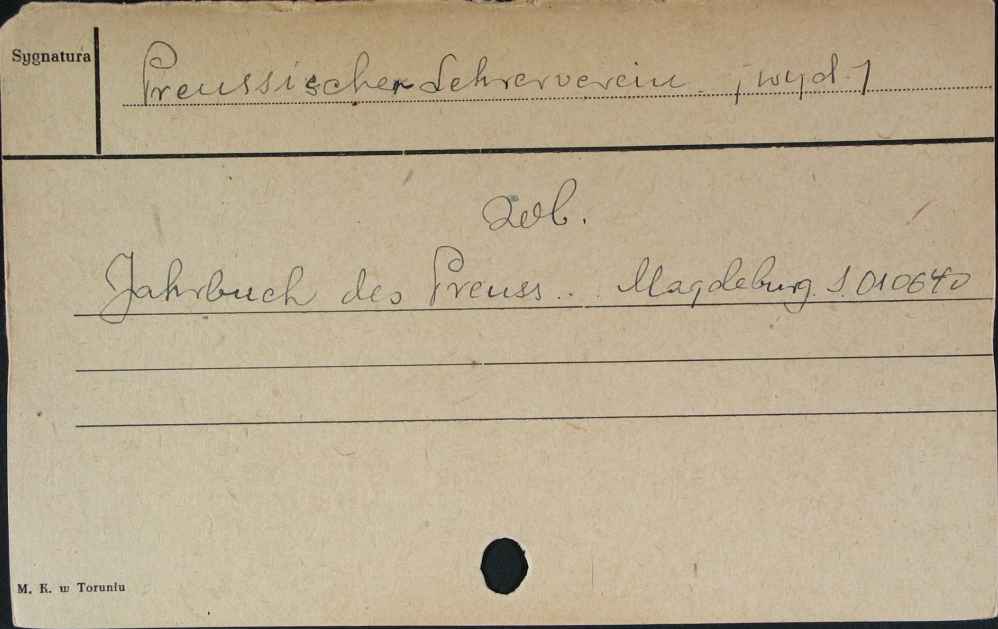 Sygnatura
Preussischer Lehrerverein. /wyd./
Zob.
Jahrbuch des Preuss... Magdeburg S 010640
M. K. w Toruniu